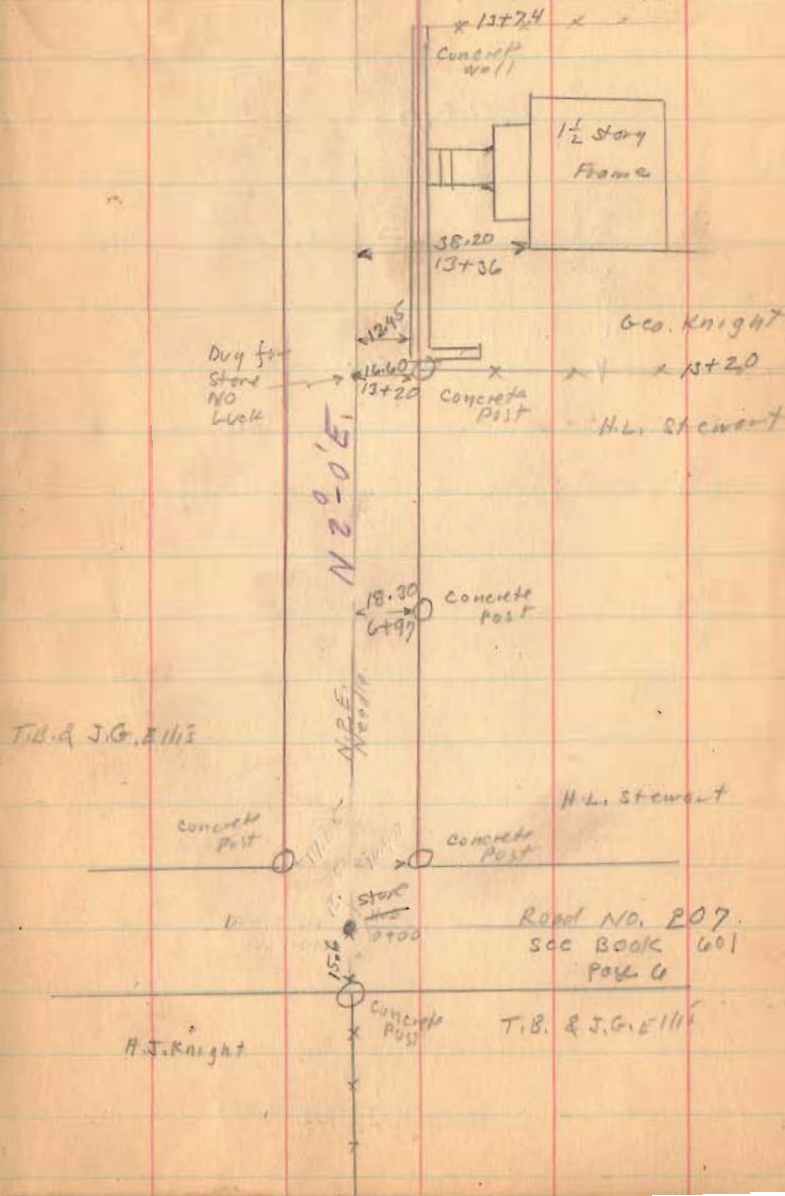 13+74
Concrete
Wall
1½ Story
Frame
38.20
13+36
12.45
Geo. Knight
Dug for
Stone
NO
Luck
16.60
13+20
Concrete
Post
13+20
H.L. Stewart
N 2°-0' E.
18.30
6+97
Concrete
Post
N.2.E.
Needle
T.B. & J.G. Ellis
H.L. Stewart
Concrete
Post
Concrete
Post
Stone
0+00
15.6
Road NO. 207.
SEE BOOK 601
Page 6
Concrete
Post
T.B. & J.G. Ellis
H.J. Knight